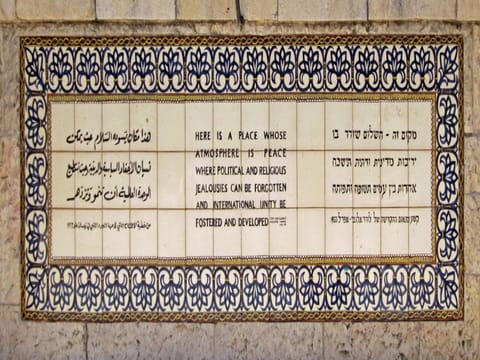 هذا مكان يسوده السلام حيث يمكن
نسيان الأحقاد السياسية والدينية وحيث تستطيع
الوحدة العالمية أن تنمو وتزدهر
من خطبة
HERE IS A PLACE WHOSE
ATMOSPHERE IS PEACE
WHERE POLITICAL AND RELIGIOUS
JEALOUSIES CAN BE FORGOTTEN
AND INTERNATIONAL UNITY BE
FOSTERED AND DEVELOPED
מקום זה - השלום שורר בו
יריבות מדינית ודתית תשכח
אחדות בין עמים תטופח ותפותח
קטע מנאום ההקדשה של לורד אלנבי - אפריל 1933